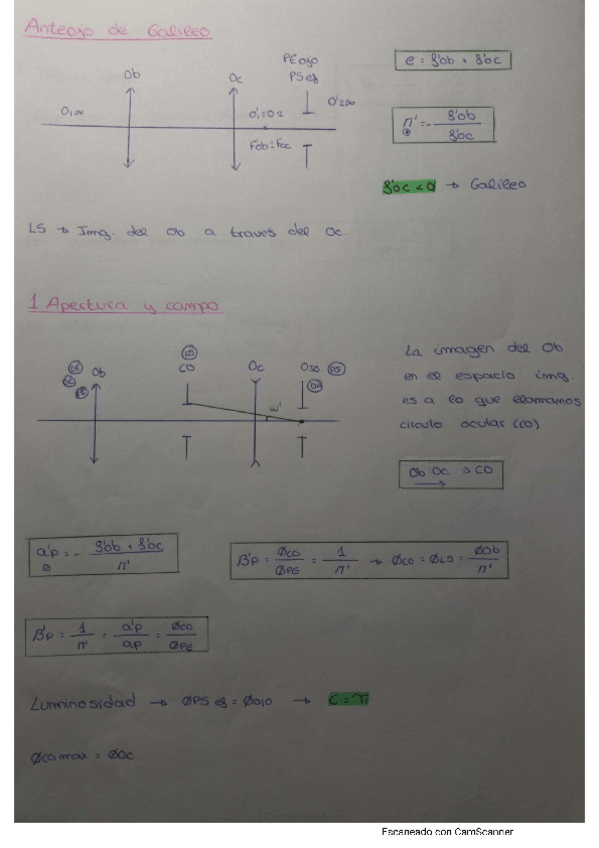 Anteojo de Galileo
PE ojo
PS ef
e = f'ob + f'oc
Ob
Oc
O1∞
O'1=O2
O'2∞
Fob=Foc
Γ' = - f'ob / f'oc
f'oc < 0 → Galileo
LS → Img. del Ob a través del Oc.
1 Apertura y campo
Ob
CO
LS
Oc
Ojo
PS
DA
LC
PE
w'
La imagen del Ob
en el espacio img.
es a lo que llamamos
círculo ocular (CO)
Ob Oc → CO
a'p = - f'ob + f'oc / Γ'
β'p = ØCO / ØPE = 1 / Γ' → ØCO = ØLS = ØOb / Γ'
β'p = 1 / Γ' = a'p / ap = ØCO / ØPE
Luminosidad → ØPS ef = Øojo → C = Ti
ØCO max = ØOc
Escaneado con CamScanner